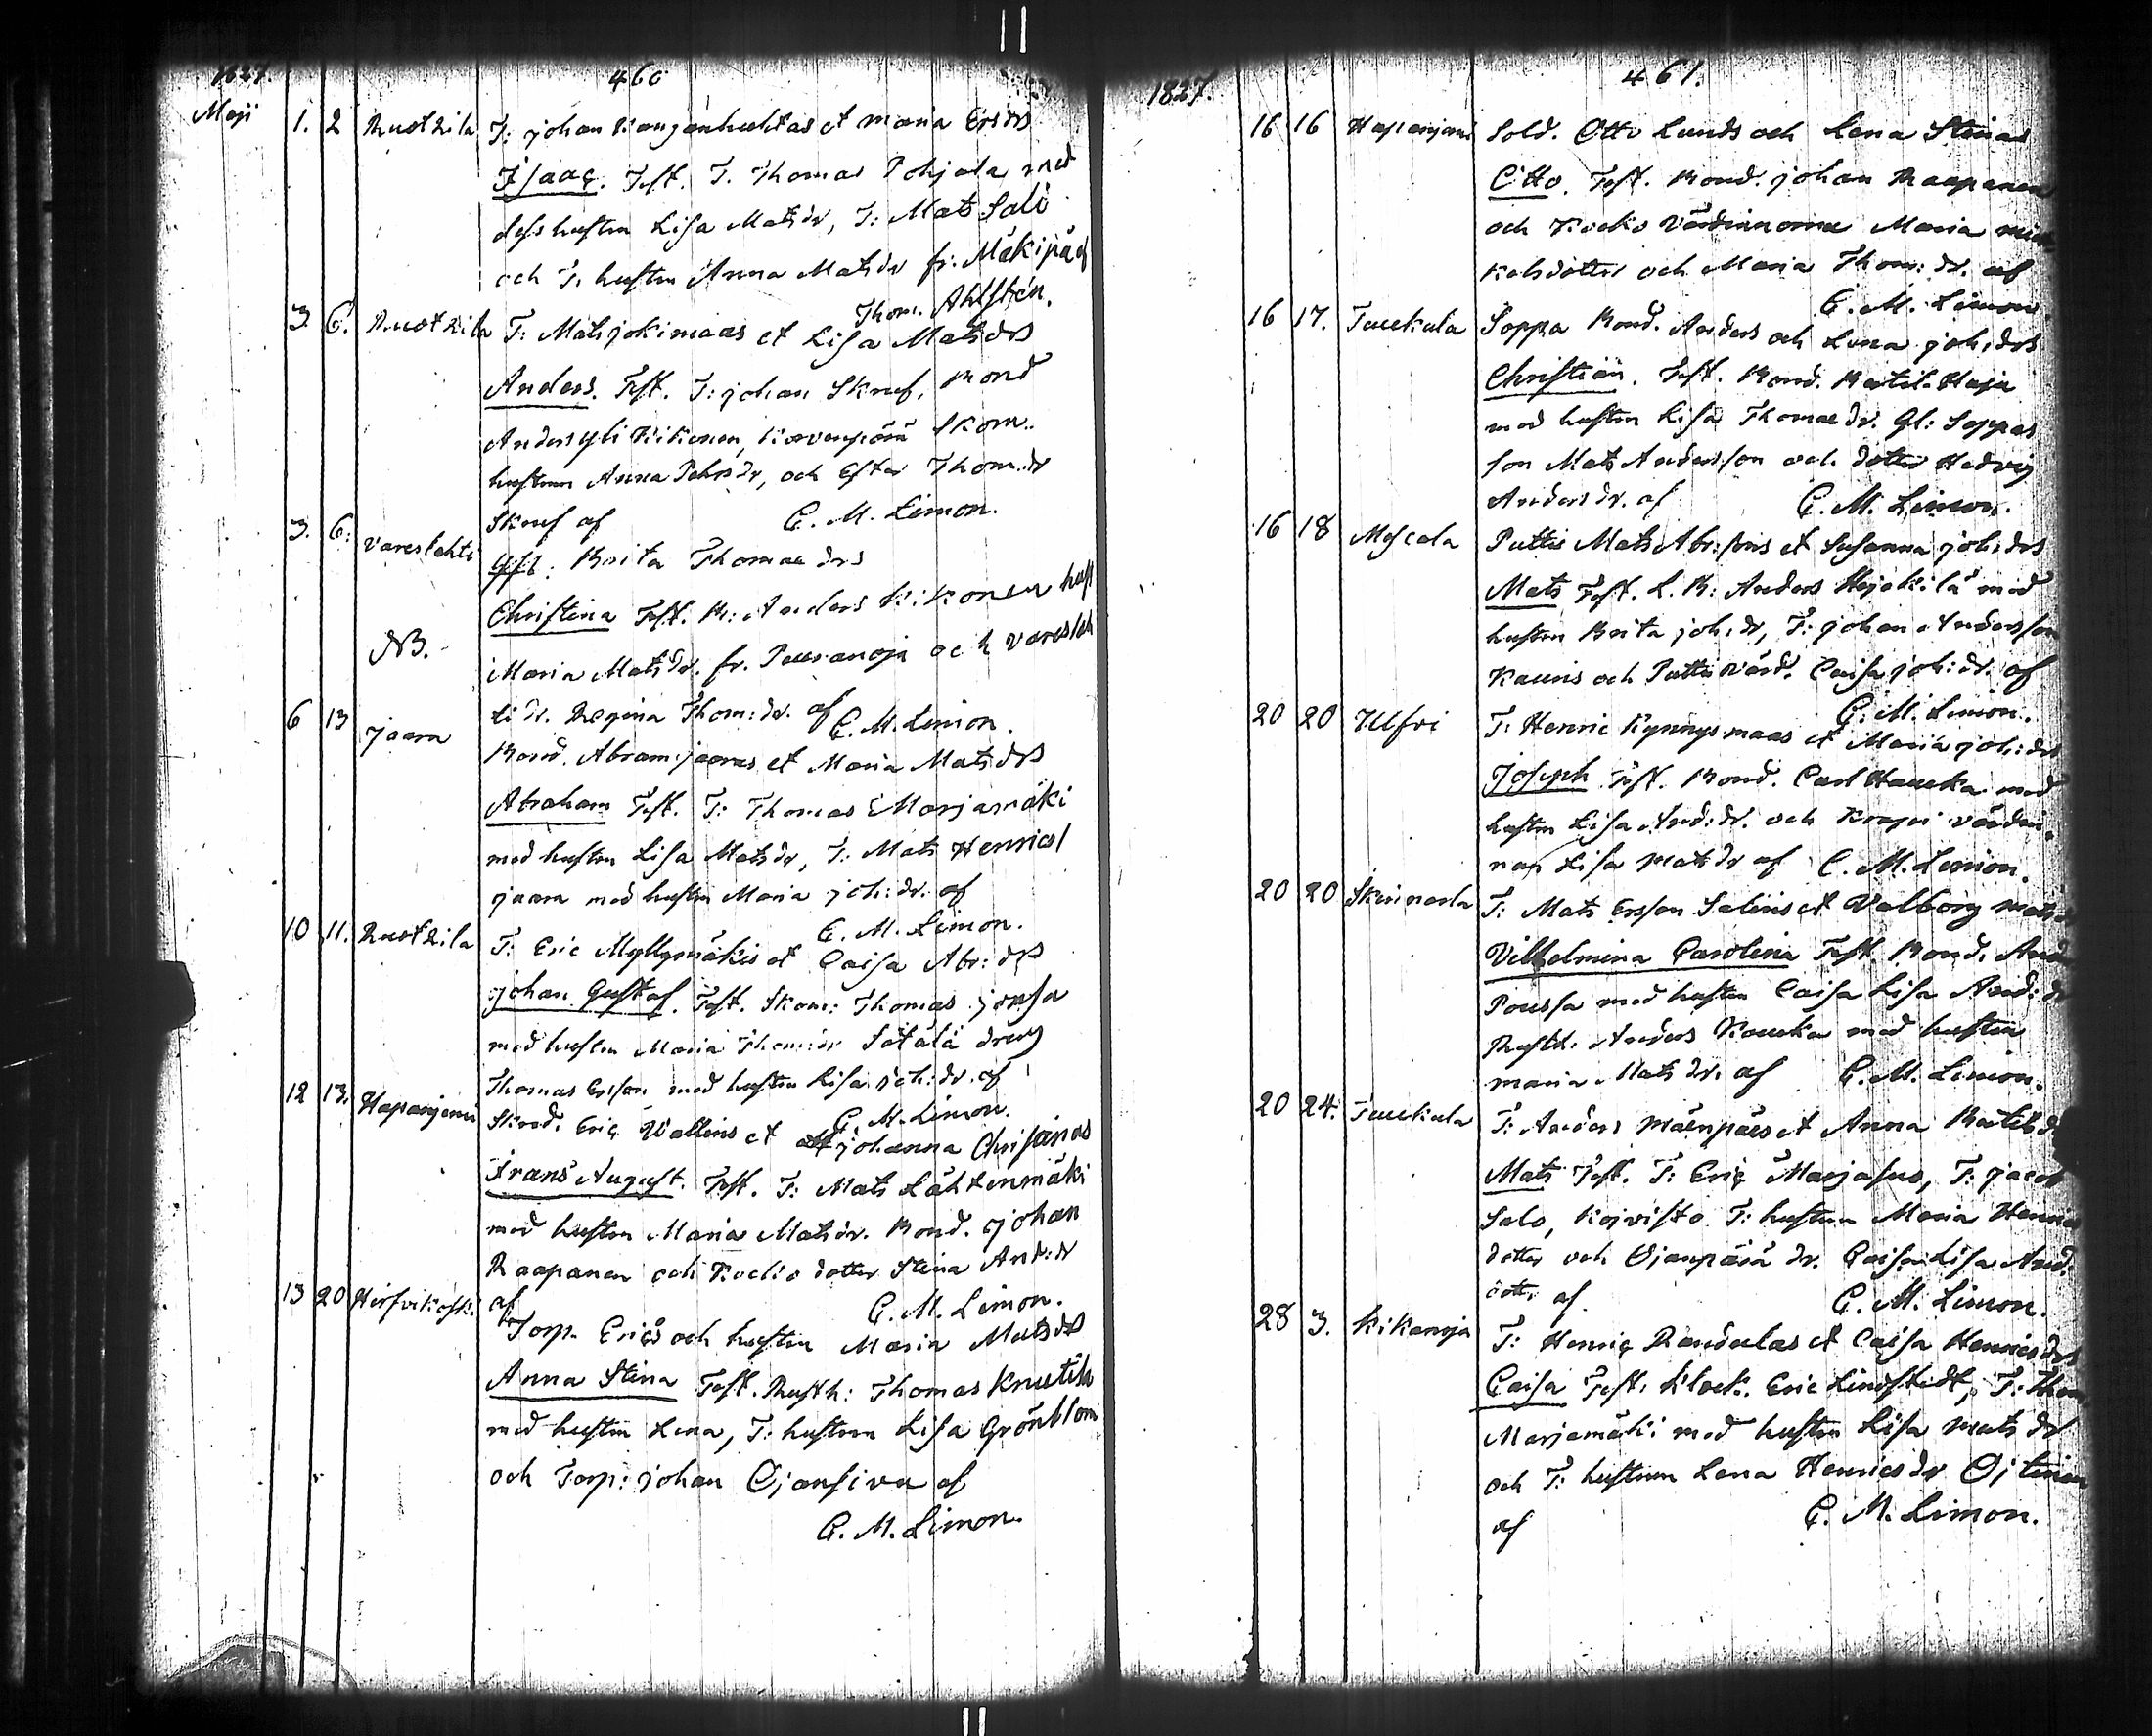 1827. 460
Maji 1. 2 Ruotzila T: Johan Kanganhuhtas et Maria Ersdrs
Isaac. Test. T. Thomas Pohjala med
dess hustru Lisa Matsdr, T: Mats Salo
och T. hustru Anna Matsdr fr. Mäkipää af
Thom. Ahlstén.
3. 6. Ruotzila T: Mats Jokimaas et Lisa Matsdrs
Anders. Test. T: Johan Skruf, Bond
Anders yli Kikonen, Korvenpörä Skom.
hustrun Anna Pehrsdr, och Ester Thom.dr
Skruf af C. M. Limon.
3. 6: Vareslehti Gfl: Brita Thomae drs
Christina Test. B: Anders Kikonen hust
NB. Maria Matsdr. fr. Peuranoja och Varesleh
ti dr. Regina Thom:dr. af C. M. Limon.
6 13 Jaara Bond. Abram Jaaras et Maria Matsdrs
Abraham Test. T: Thomas Marjamäki
med hustru Lisa Matsdr, T: Mats Henrics
Jaara med hustru Maria Joh:dr. af
C. M. Limon.
10 11. Ruotzila T: Eric Myllymäkis et Caisa Abr:drs
Johan Gustaf. Test. Skom: Thomas
med hustru Maria Thom:dr Sätälä dreng
Thomas Ersson med hustru Lisa Joh:dr. af
C. M. Limon.
12 13. Haapanjemi Skrad. Eric Wallins et Johanna Chrisinas
Frans August. Test. T: Mats Lähtenmäki
med hustru Maria Matsdr. Bond. Johan
Raapanen och Kocko dotter Stina And:dr
af C. M. Limon.
13 20 Hirfvikoski Torp. Erics och hustru Maria Matsdrs
Anna Stina Test. Rusth: Thomas Knutila
med hustru Lena, T: hustrun Lisa Grönblom
och Torp: Johan Ojansivu af
C. M. Limon.
1827. 461.
16 16 Haapanjemi Sold. Otto Lunds och Lena Stinas
Otto. Test. Bond. Johan Raapanen
och Kocko värdinnorna Maria
kelsdotter och Maria Thom:dr. af
C. M. Limon.
16 17. Tuukula Soppa Bond. Anders och Lena Joh:drs
Christian. Test. Bond. Bertil Haja
med hustru Lisa Thomae dr. Gl: Soppas
son Mats Andersson och dotter Hedvig
Andersdr. af C. M. Limon.
16 18 Mescala Puttis Mats Abr:sons et Susanna Joh:drs
Mats Test. L. B: Anders Heikilä med
hustru Brita Joh:dr, T: Johan Andersson
Kauris och Puttis värd. Caisa Joh:dr. af
C. M. Limon.
20 20 Ulfvi T: Henric Kynnysmaas et Maria Joh:drs
Joseph Test. Bond. Carl Haucka med
hustru Lisa And:dr. och Krapi värdin-
nan Lisa Matsdr af C. M. Limon.
20 20 Skinnarla T: Mats Ersson Salins et Valborg Mats
Vilhelmina Carolina Test. Bond. And
Poussa med hustru Caisa Lisa And:dr
Rusth. Anders Koucka med hustru
Maria Matsdr. af C. M. Limon.
20 24. Tuukula T: Anders Mäenpäes et Anna Bertils d
Mats Test. T: Eric Marjasus, T: Jacob
Salo, Koivisto T: hustrun Maria Henrics
dotter och Ojanpärä dr. Caisa Lisa And.
dotter af C. M. Limon.
28 3. Kikanoja T: Henric Randulas et Caisa Henricsdrs
Caisa Test. Klock. Eric Lindstedt, T: Thom
Marjamäki med hustru Lisa Matsdr
och T: hustrun Lena Henricsdr
af C. M. Limon.